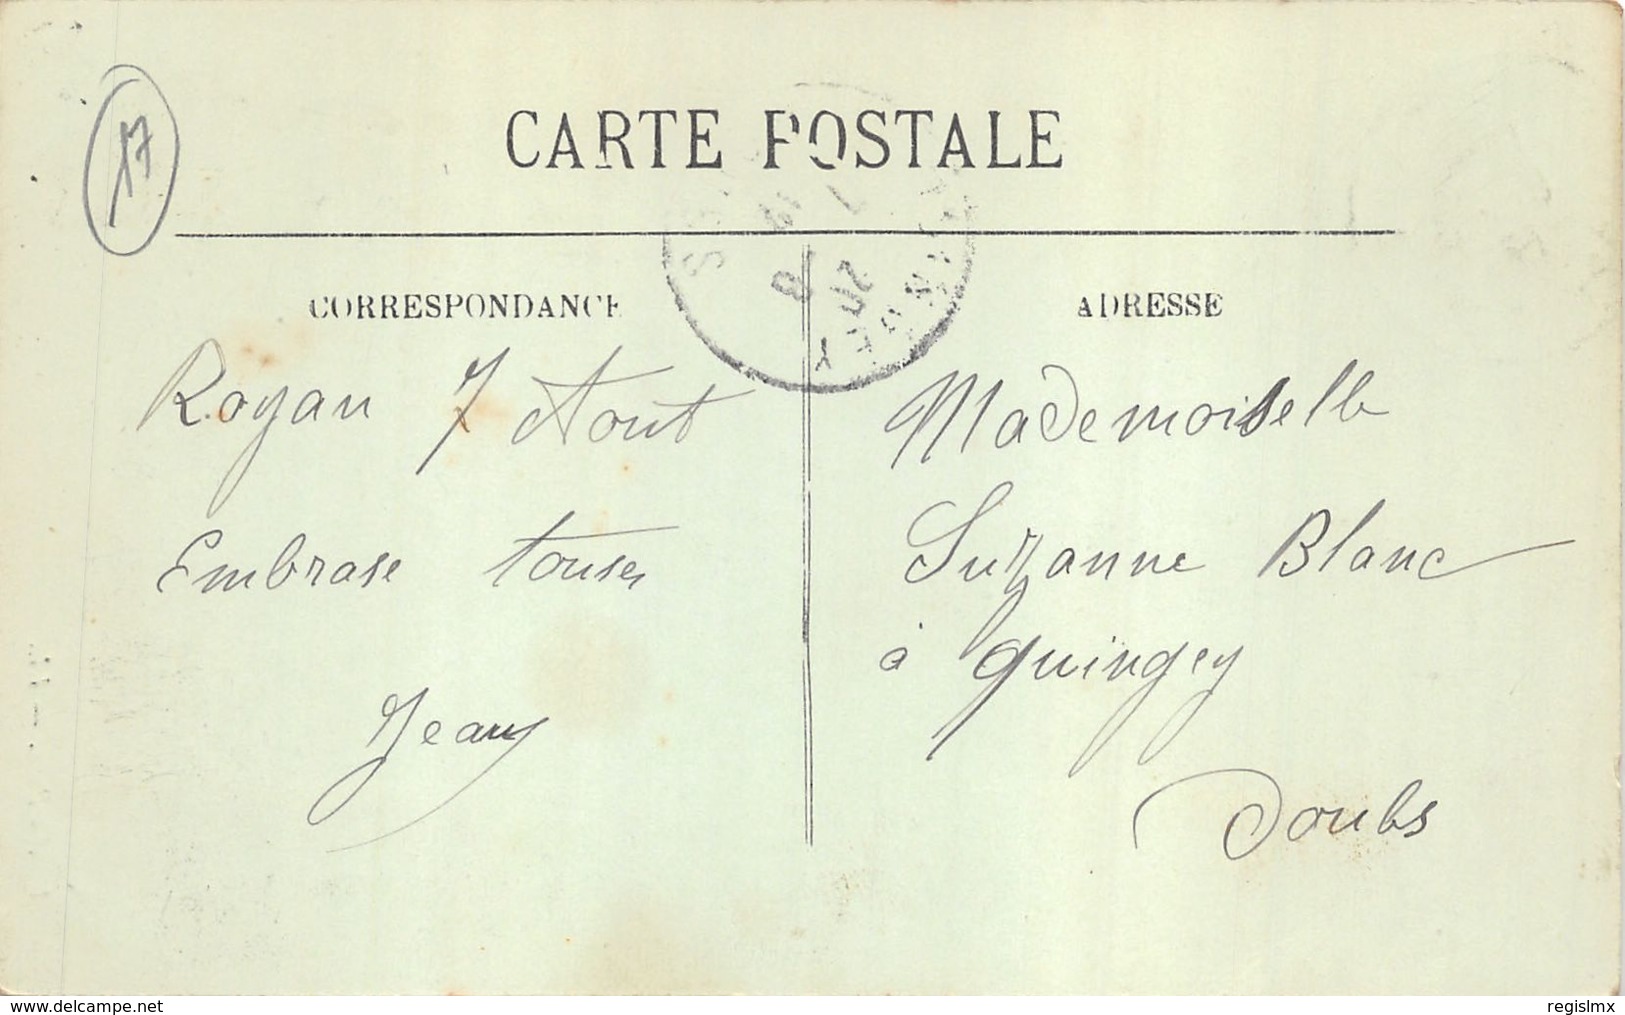 17
CARTE POSTALE
CORRESPONDANCE
Royan 7 Aout
Embrase touses
Jean
ADRESSE
Mademoiselle
Suzanne Blanc
à Quingey
Doubs
www.delcampe.net
regislmx